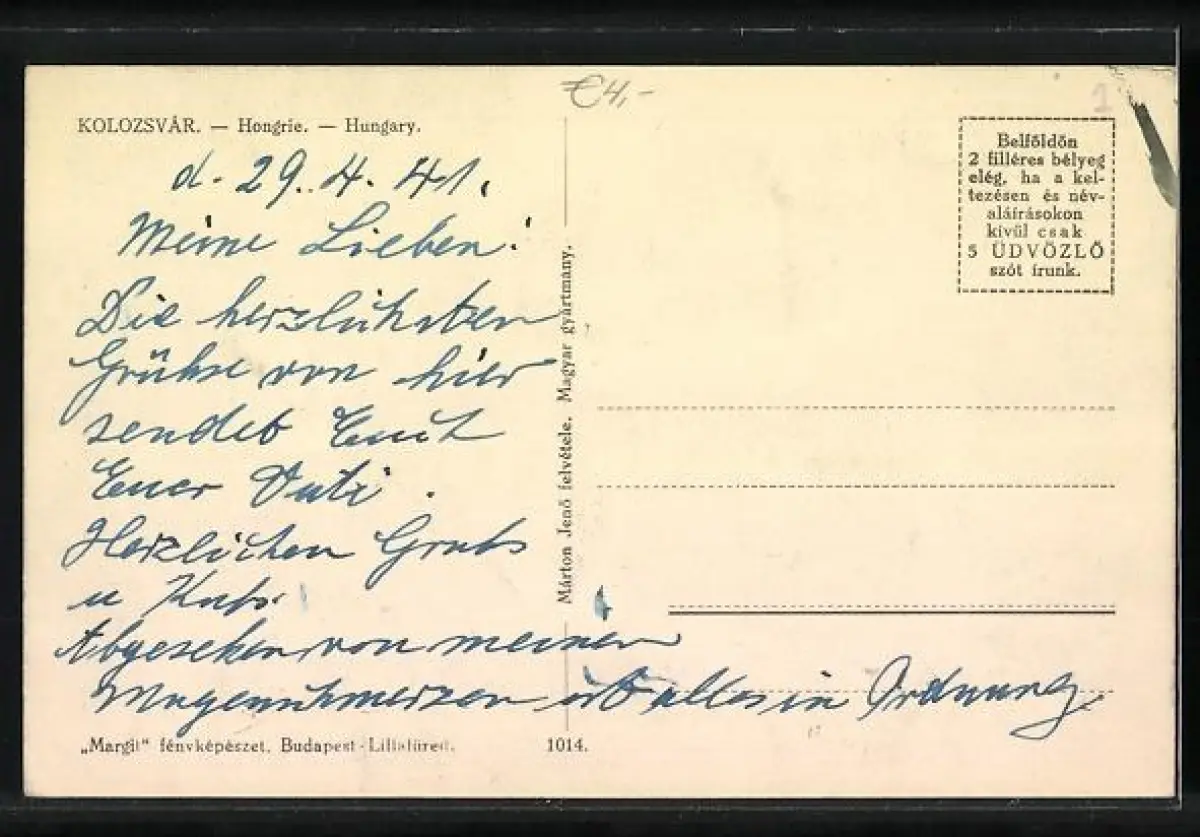 €4,-
1
KOLOZSVÁR. — Hongrie. — Hungary.
d. 29. 4. 41.
Meine Lieben!
Die herzlichsten
Grühse von hier
sendet Euch
Euer Vati.
Herzlichen Gruß
u Kuß.
Abgesehen von meinen
Magenschmerzen ist alles in Ordnung.
„Margit" fényképészet, Budapest-Lillafüred.
1014.
Márton Jenő felvétele. Magyar gyártmány.
Belföldön
2 filléres bélyeg
elég, ha a kel-
tezésen és név-
aláírásokon
kívül csak
5 ÜDVÖZLŐ
szót írunk.